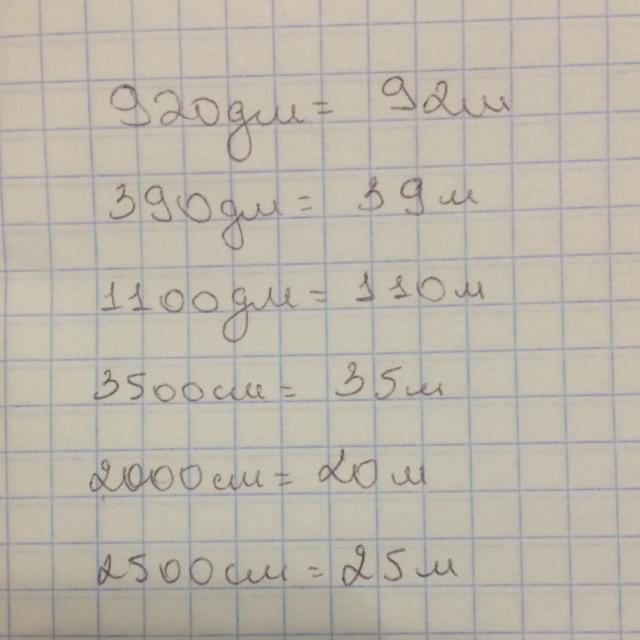 920дм = 92м
390дм = 39м
1100дм = 110м
3500см = 35м
2000см = 20м
2500см = 25м